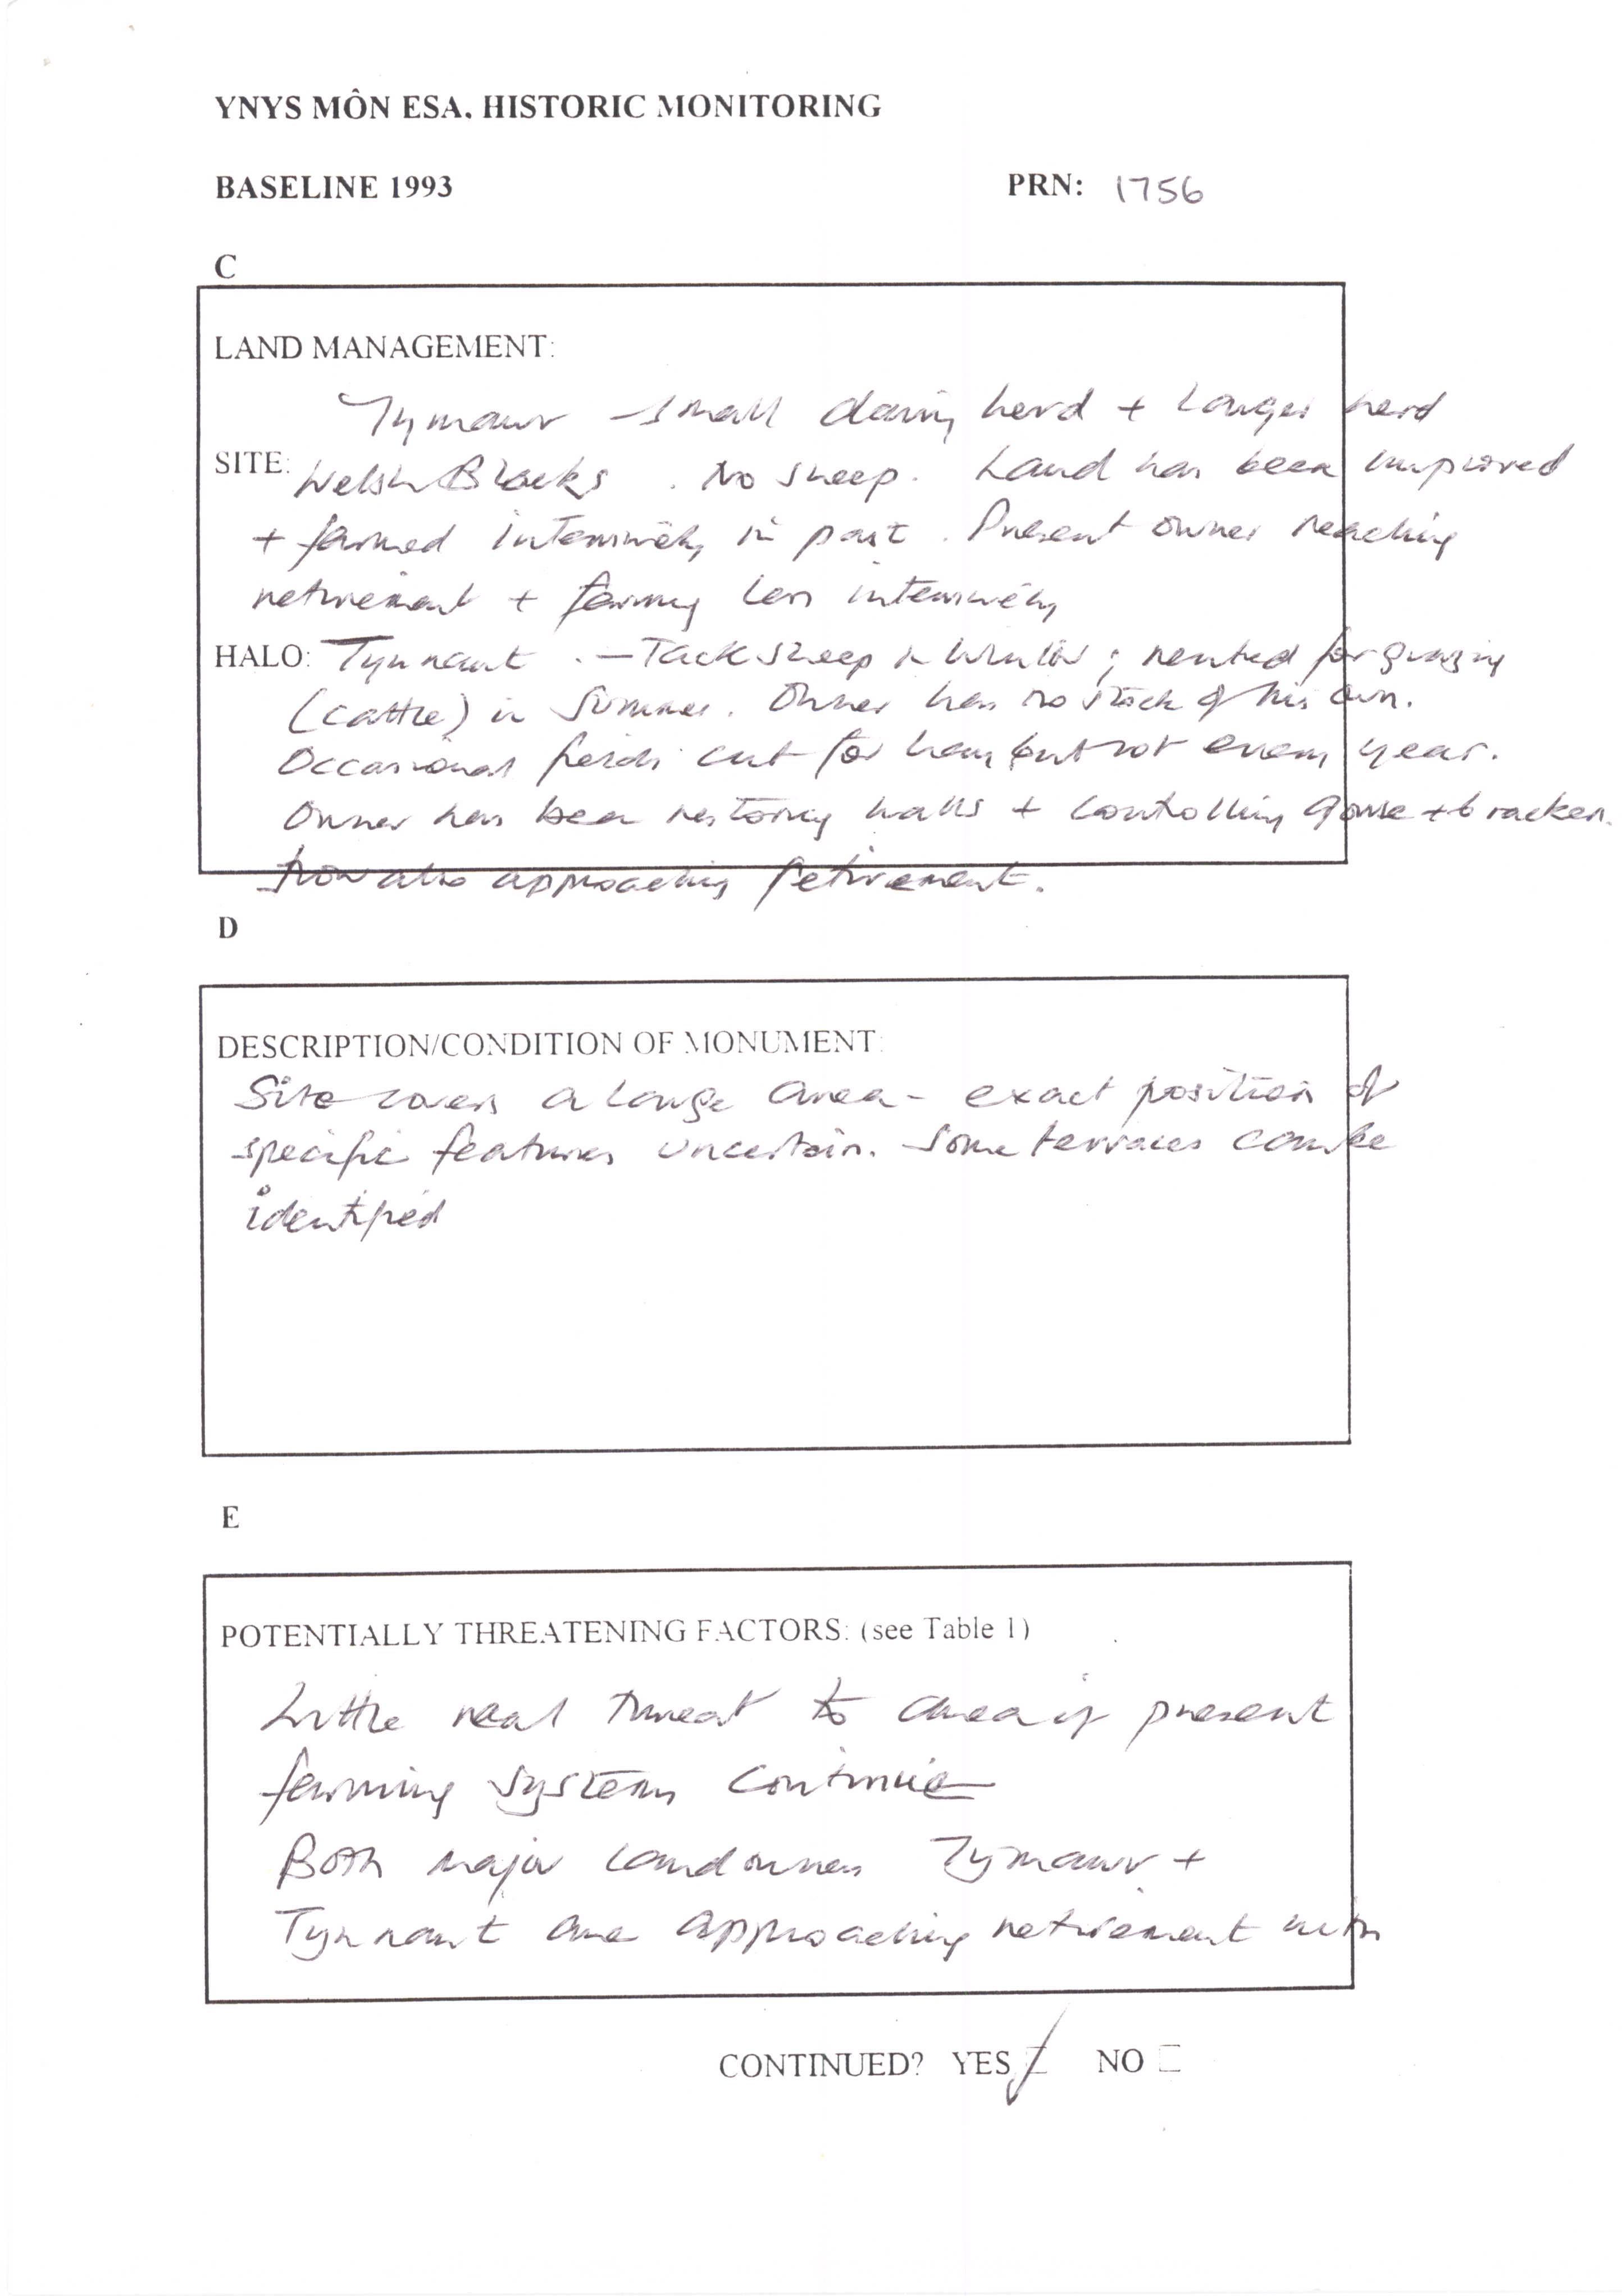 YNYS MÔN ESA. HISTORIC MONITORING
BASELINE 1993 PRN: 1756
C
LAND MANAGEMENT:
Tymawr - small dairy herd + larger herd
SITE: Welsh Blacks. No sheep. Land has been improved
+ farmed intensively in part. Present owner reaching
retirement + farming less intensively
HALO: Tynnant. - Tack sheep in winter; rented for grazing
(cattle) in summer. Owner has no stock of his own.
Occasional fields cut for hay but not every year.
Owner has been restoring walls + controlling gorse + bracken.
Now also approaching retirement.
D
DESCRIPTION/CONDITION OF MONUMENT:
Site covers a large area - exact position of
specific features uncertain. Some terraces can be
identified
E
POTENTIALLY THREATENING FACTORS: (see Table 1)
Little real threat to area if present
farming systems continue
Both major landowners Tymawr +
Tynnant are approaching retirement with
CONTINUED? YES NO